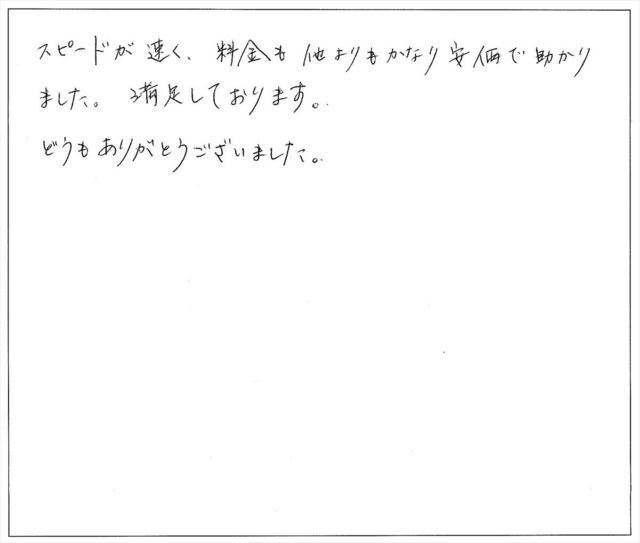 スピードが速く、料金も他よりもかなり安価で助かり
ました。満足しております。
どうもありがとうございました。